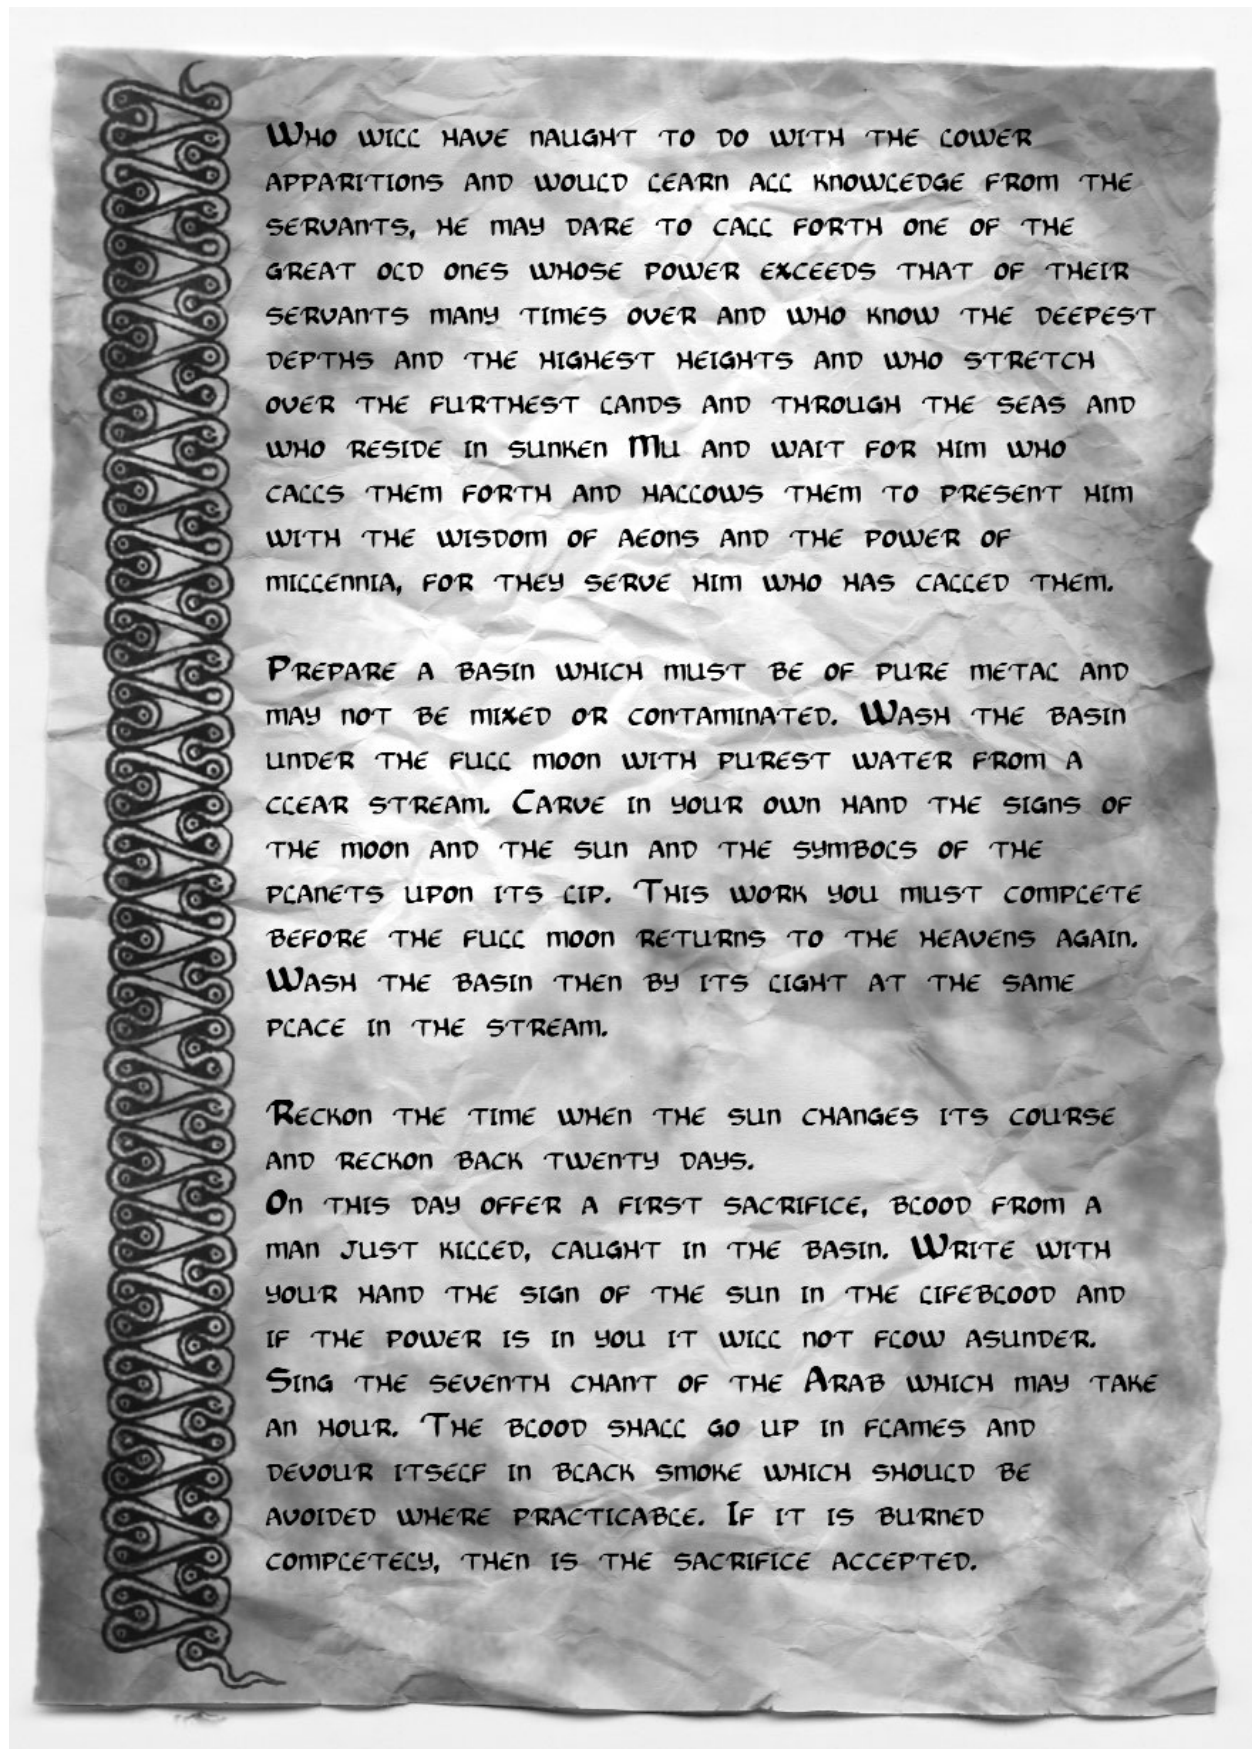 Who will have naught to do with the lower
apparitions and would learn all knowledge from the
servants, he may dare to call forth one of the
great old ones whose power exceeds that of their
servants many times over and who know the deepest
depths and the highest heights and who stretch
over the furthest lands and through the seas and
who reside in sunken Mu and wait for him who
calls them forth and hallows them to present him
with the wisdom of aeons and the power of
millennia, for they serve him who has called them.

Prepare a basin which must be of pure metal and
may not be mixed or contaminated. Wash the basin
under the full moon with purest water from a
clear stream. Carve in your own hand the signs of
the moon and the sun and the symbols of the
planets upon its lip. This work you must complete
before the full moon returns to the heavens again.
Wash the basin then by its light at the same
place in the stream.

Reckon the time when the sun changes its course
and reckon back twenty days.
On this day offer a first sacrifice, blood from a
man just killed, caught in the basin. Write with
your hand the sign of the sun in the lifeblood and
if the power is in you it will not flow asunder.
Sing the seventh chant of the Arab which may take
an hour. The blood shall go up in flames and
devour itself in black smoke which should be
avoided where practicable. If it is burned
completely, then is the sacrifice accepted.